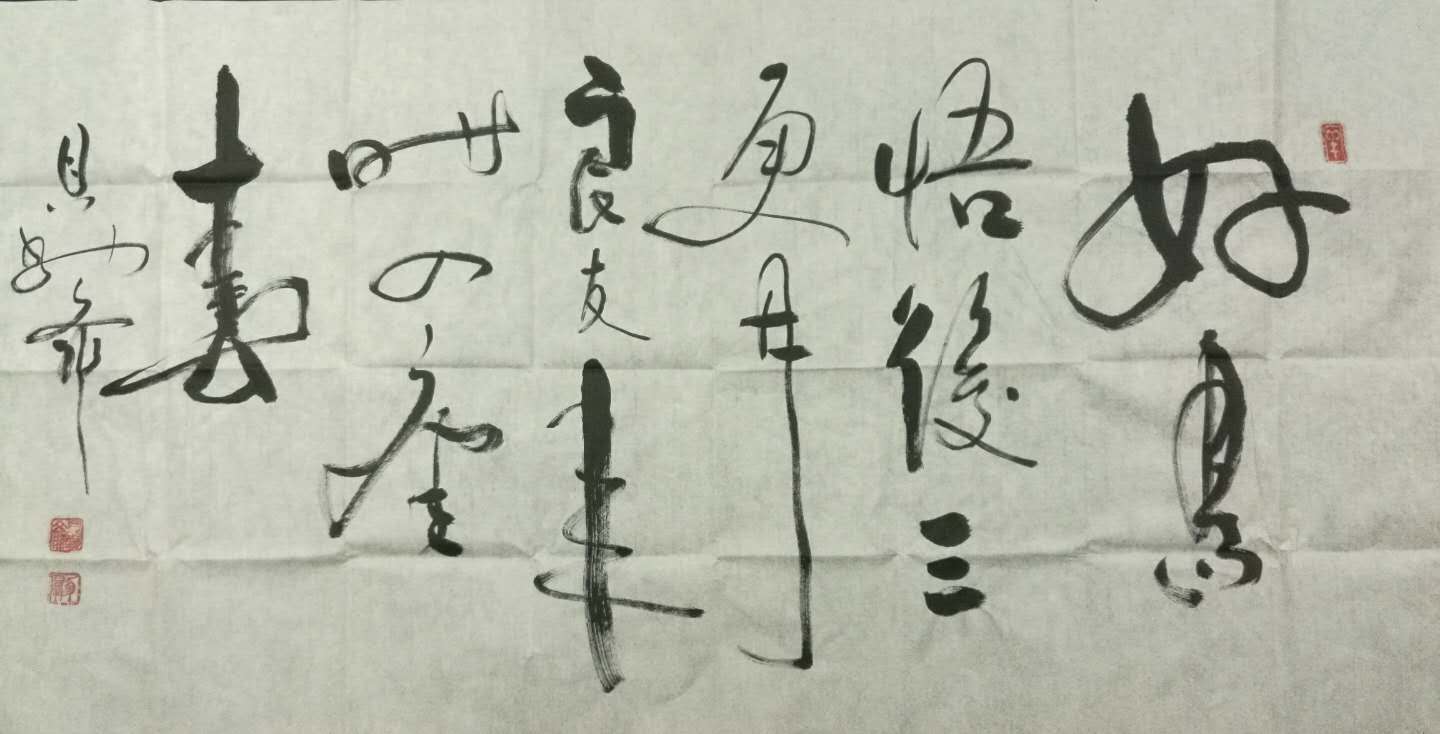 好書
悟後三
更月
良友來
時四座
春